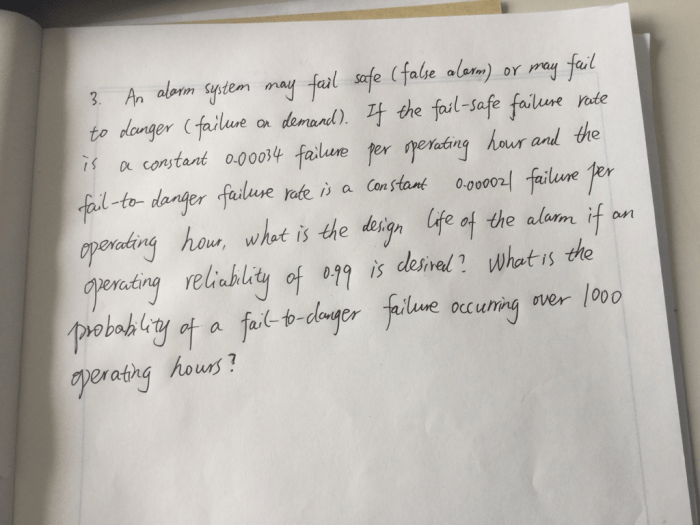 3. An alarm system may fail safe (false alarm) or may fail
to danger (failure on demand). If the fail-safe failure rate
is a constant 0.00034 failure per operating hour and the
fail-to-danger failure rate is a constant 0.000021 failure per
operating hour, what is the design life of the alarm if an
operating reliability of 0.99 is desired? What is the
probability of a fail-to-danger failure occurring over 1000
operating hours?